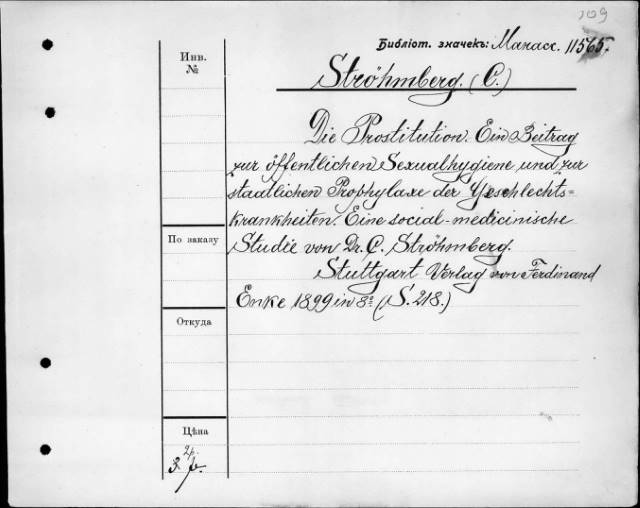 109
Библіот. значекъ: Манасс. 11565.
Инв.
№
Ströhmberg. (C.)
Die Prostitution. Ein Beitrag
zur öffentlichen Sexualhygiene und zur
staatlichen Prophylaxe der Geschlechts=
krankheiten. Eine social-medicinische
По заказу
Studie von Dr. C. Ströhmberg.
Stuttgart Verlag von Ferdinand
Enke 1899 in 8º (S. 218.)
Откуда
Цѣна
2р.
3.